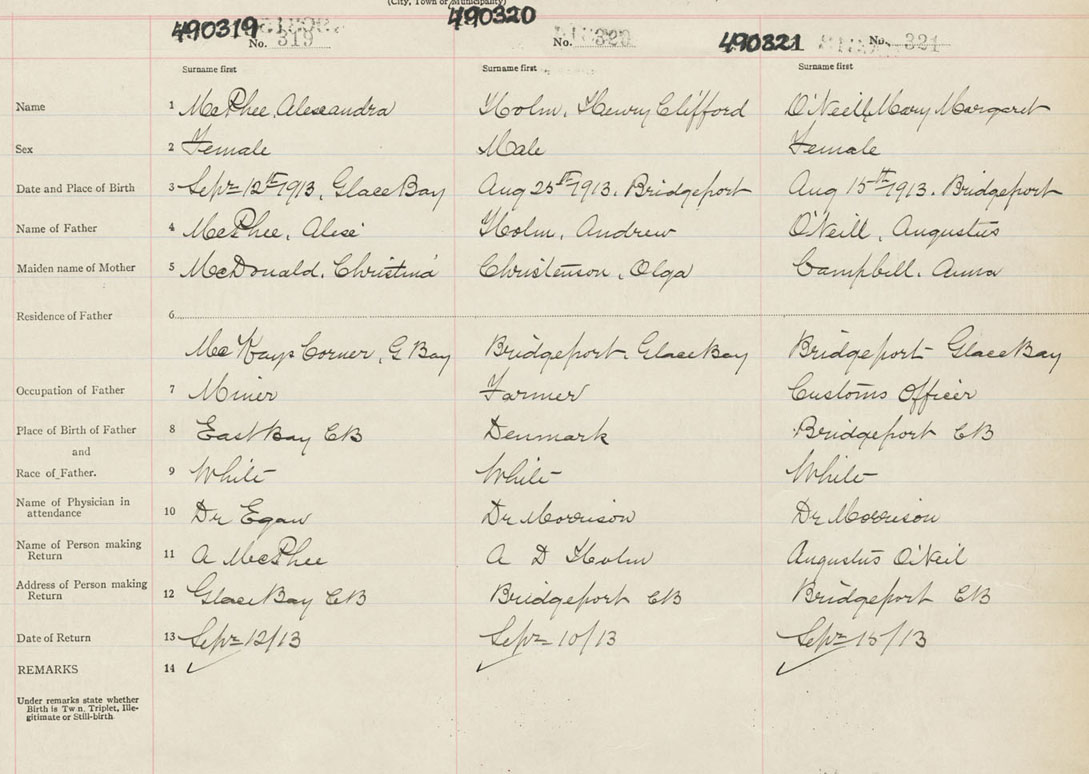 (City, Town or Municipality)
490319 490320 490321
No. 319 No. 320 No. 321
Surname first Surname first Surname first
Name 1 McPhee, Alexandra Holm, Henry Clifford O'Neill, Mary Margaret
Sex 2 Female Male Female
Date and Place of Birth 3 Sept 12th 1913, Glace Bay Aug 25th 1913. Bridgeport Aug 15th 1913. Bridgeport
Name of Father 4 McPhee, Holm, Andrew O'Neill, Augustus
Maiden name of Mother 5 McDonald, Christina Christenson, Olga Campbell, Anna
Residence of Father 6
McKays Corner, G Bay Bridgeport Glace Bay Bridgeport Glace Bay
Occupation of Father 7 Miner Farmer Customs Officer
Place of Birth of Father 8 East Bay CB Denmark Bridgeport CB
and
Race of Father. 9 White White White
Name of Physician in
attendance 10 Dr Egan Dr Morrison Dr Morrison
Name of Person making
Return 11 A McPhee A D Holm Augustus O'Neil
Address of Person making
Return 12 Glace Bay CB Bridgeport CB Bridgeport CB
Date of Return 13 Sept 12/13 Sept 10/13 Sept 15/13
REMARKS 14
Under remarks state whether
Birth is Twin, Triplet, Ille-
gitimate or Still-birth